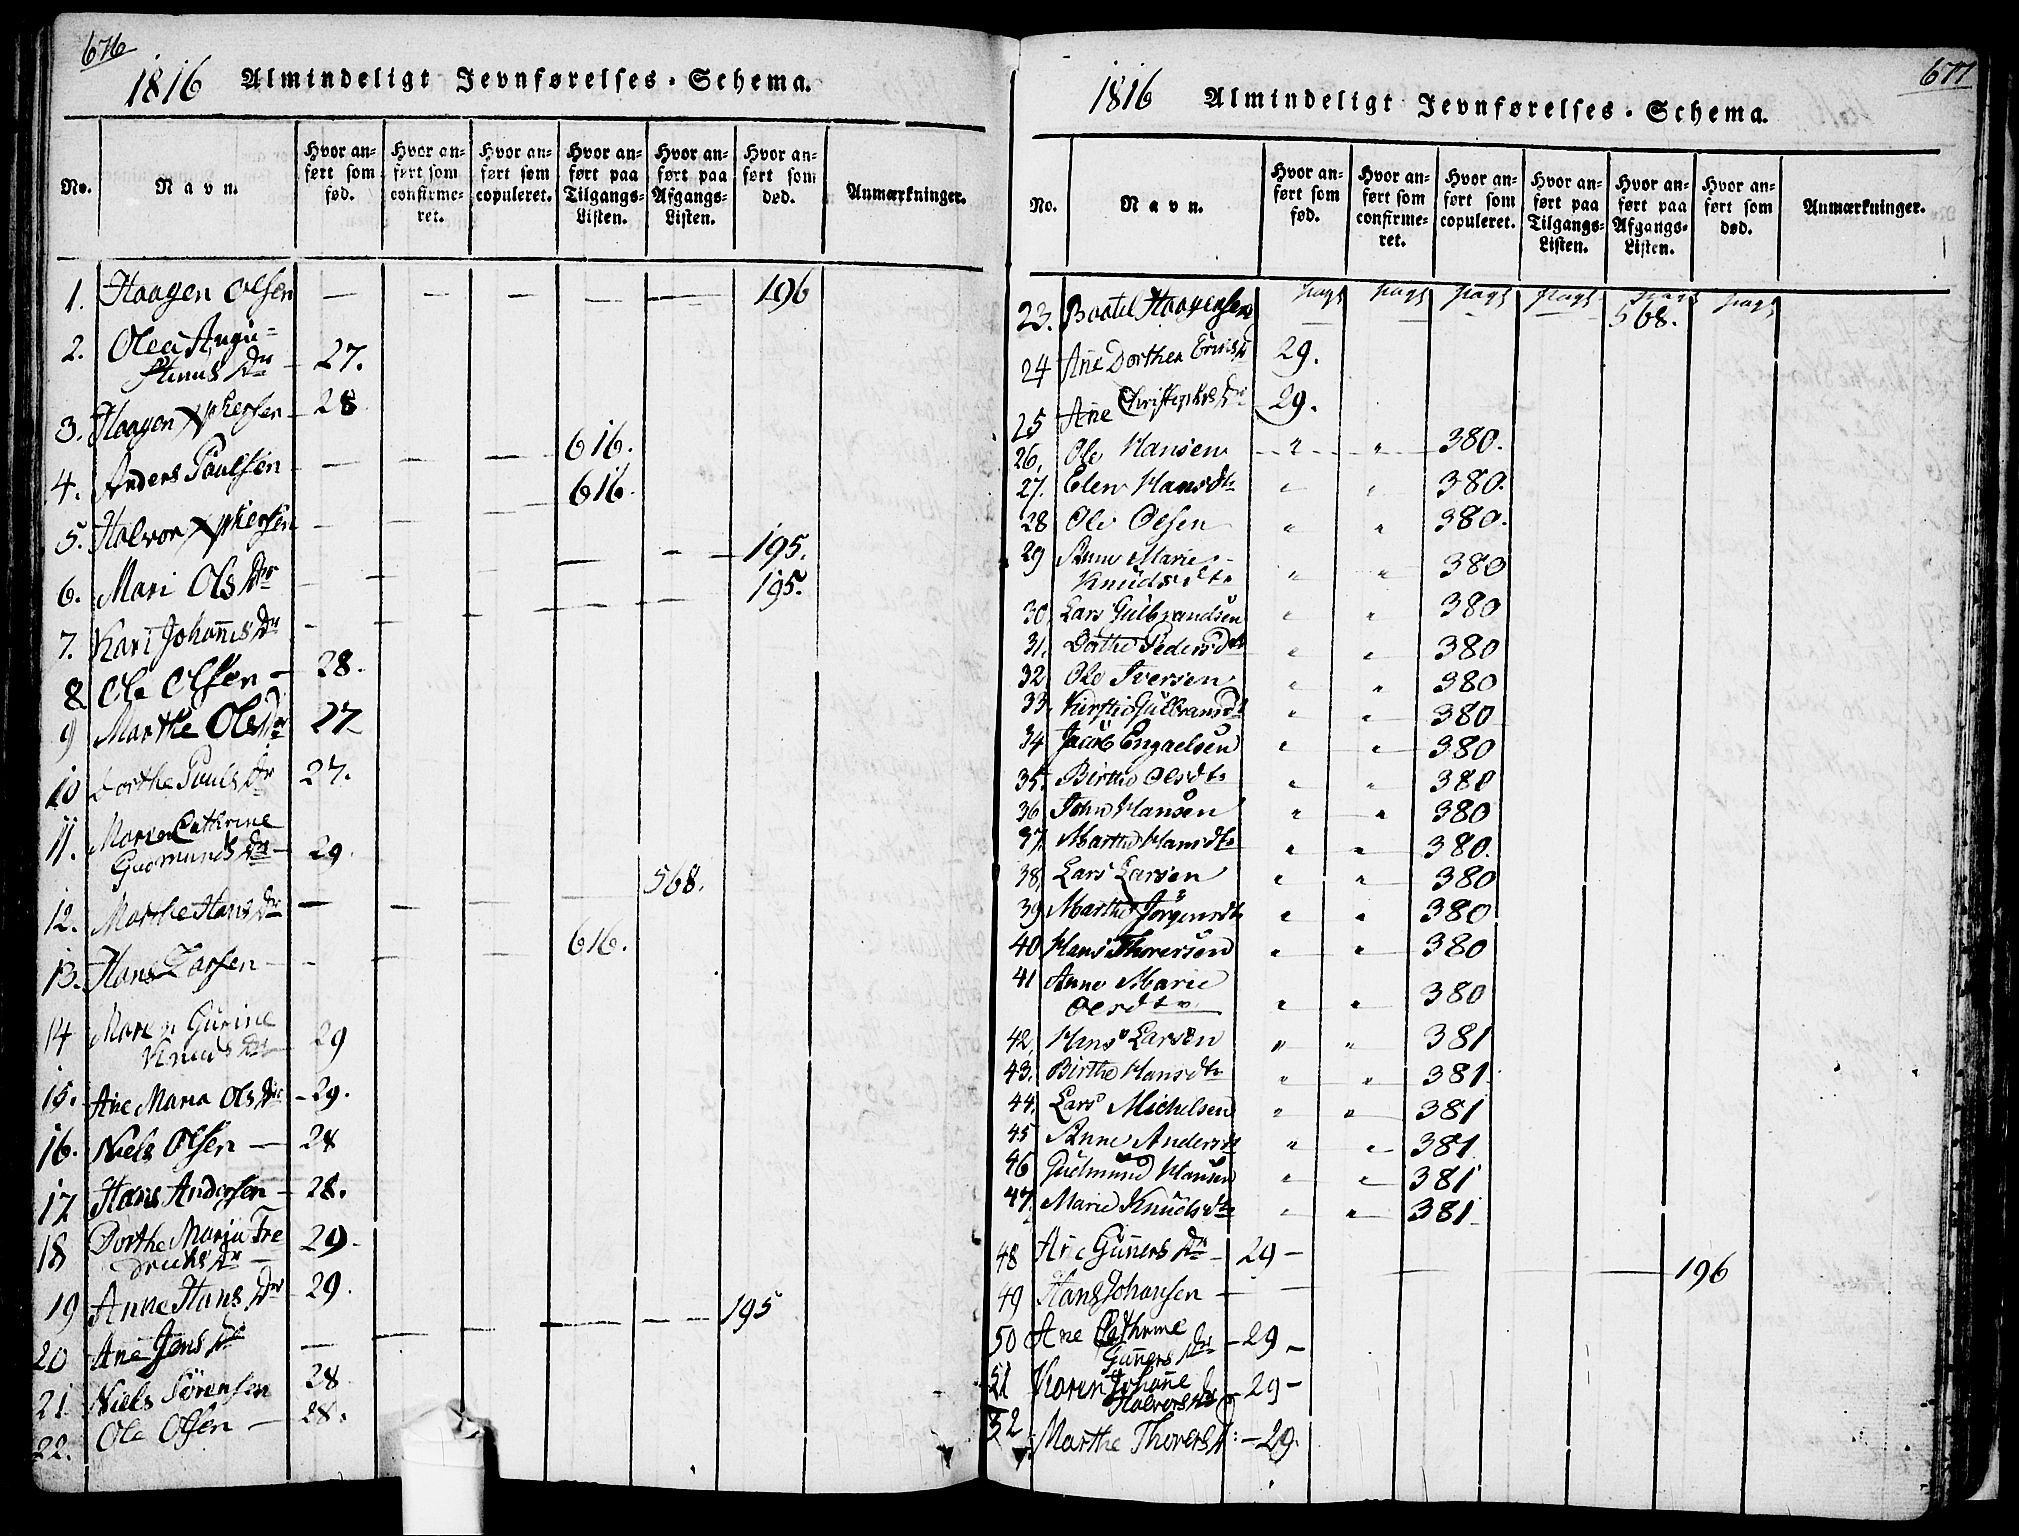 676
1816 Almindeligt Jevnførelses-Schema.
No. Navn. Hvor anført som fød. Hvor anført som confirmeret. Hvor anført som copuleret. Hvor anført paa Tilgangs-Listen. Hvor anført paa Afgangs-Listen. Hvor anført som død. Anmærkninger.
1. Haagen Olsen — — — — — 196
2. Olea Augu=
stinus Dr 27.
3. Haagen Xphersen 28
4. Anders Paulsen — — — 616.
5. Halvor Xphersen — — — 616.
6. Mari Ols Dr — — — — — 195.
7. Kari Johañes Dr — — — — — 195.
8 Ole Olsen — 28.
9 Marthe Ols Dr 27
10 Dorthe Pauls Dr 27.
11. Maren Cathrine
Gudmunds Dr — 29.
12. Marthe Hans Dr — — — — 568.
13. Hans Larsen — — — — 616.
14 Maren Gurine
Knuds Dr 29
15. Ane Maria Ols Dr — 29.
16. Niels Olsen — 28
17 Hans Andersen — 28.
18 Dorthe Maria Fre
dricks Dr — 29.
19 Anne Hans Dr 29.
20 Ane Jens Dr — — — — — 195
21 Niels Sörensen 28
22. Ole Olsen — 28.
677
1816 Almindeligt Jevnførelses-Schema.
No. Navn. Hvor anført som fød. Hvor anført som confirmeret. Hvor anført som copuleret. Hvor anført paa Tilgangs-Listen. Hvor anført paa Afgangs-Listen. Hvor anført som død. Anmærkninger.
23. Haagensen — — — — 568.
24 Ane Dorthea 29.
25 Ane Christophers Dr 29.
26. Ole Hansen " " 380.
27. Elen Hansdtr " " 380.
28 Ole Olsen " " 380.
29 Anne Marie
Knudsdtr " " 380
30. Lars Gulbrandsen " " 380
31. Dorthe Pedersdtr " " 380
32 Ole Iversen " " 380
33. Kirstie Gulbransdt " " 380
34 Jacob Engaelsen " " 380
35. Birthe Olsdtr " " 380
36. John Hansen " " 380
37. Marthe Hansdtr " " 380.
38. Lars Larsen " " 380
39 Marthe Jörgensdt " " 380
40 Hans Thoversen " " 380
41 Anne Marie
Olsdtr " " 380
42. Hans Larsen " " 381
43. Birthe Hansdtr " " 381.
44. Lars Michelsen " " 381
45 Anne Andersdt " " 381
46 Gudmund Hansen " " 381
47. Marie Knudsdtr " " 381
48 Ane Guñers Dr — 29 —
49 Hans Johansen — — — — — 196
50 Ane Cathrine
Guñers Dr — 29 —
51 Karen Johañe
Halvors Dr — 29 —
52 Marthe Thovers D: — 29.